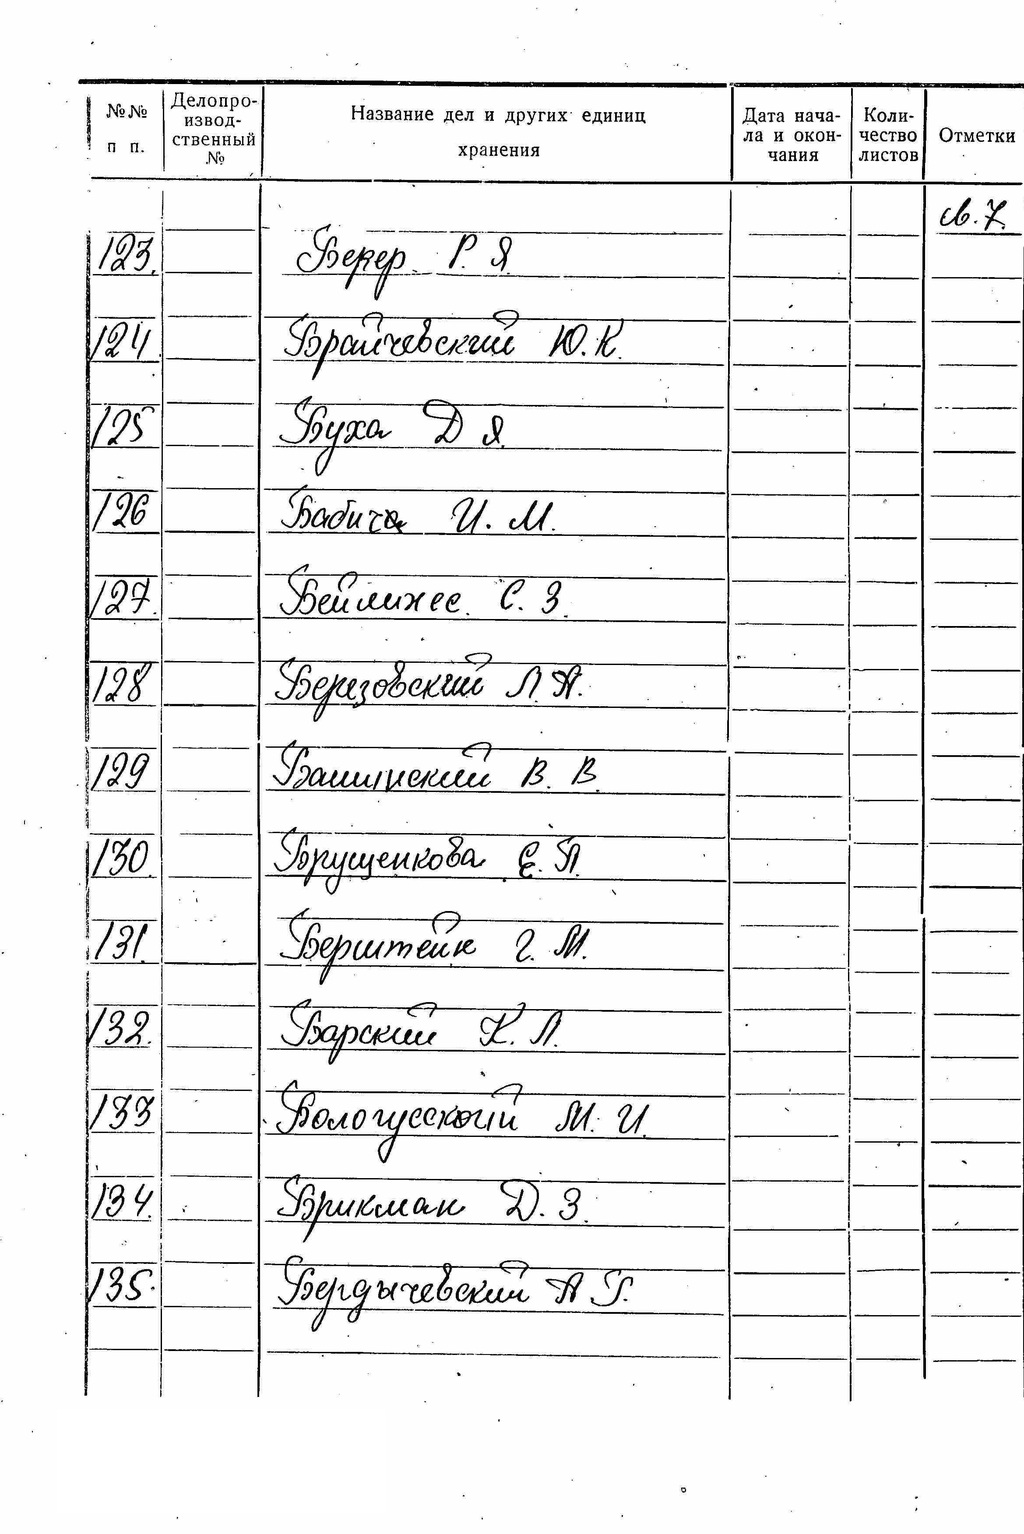 №№ п п. Делопро-изводственный № Название дел и других единиц хранения Дата начала и окончания Количество листов Отметки
св. 7.
123. Бекер Р. Я.
124. Брайчевский Ю. К.
125 Буха Д Я.
126 Бабича И. М.
127. Бейлихес С. З.
128 Березовский Л А.
129 Башинский В. В.
130. Брущенкова Е. П.
131. Берштейн Г. М.
132. Барский К. Л.
133 Бологусский М. И.
134. Брикман Д. З.
135. Бердычевский А Г.